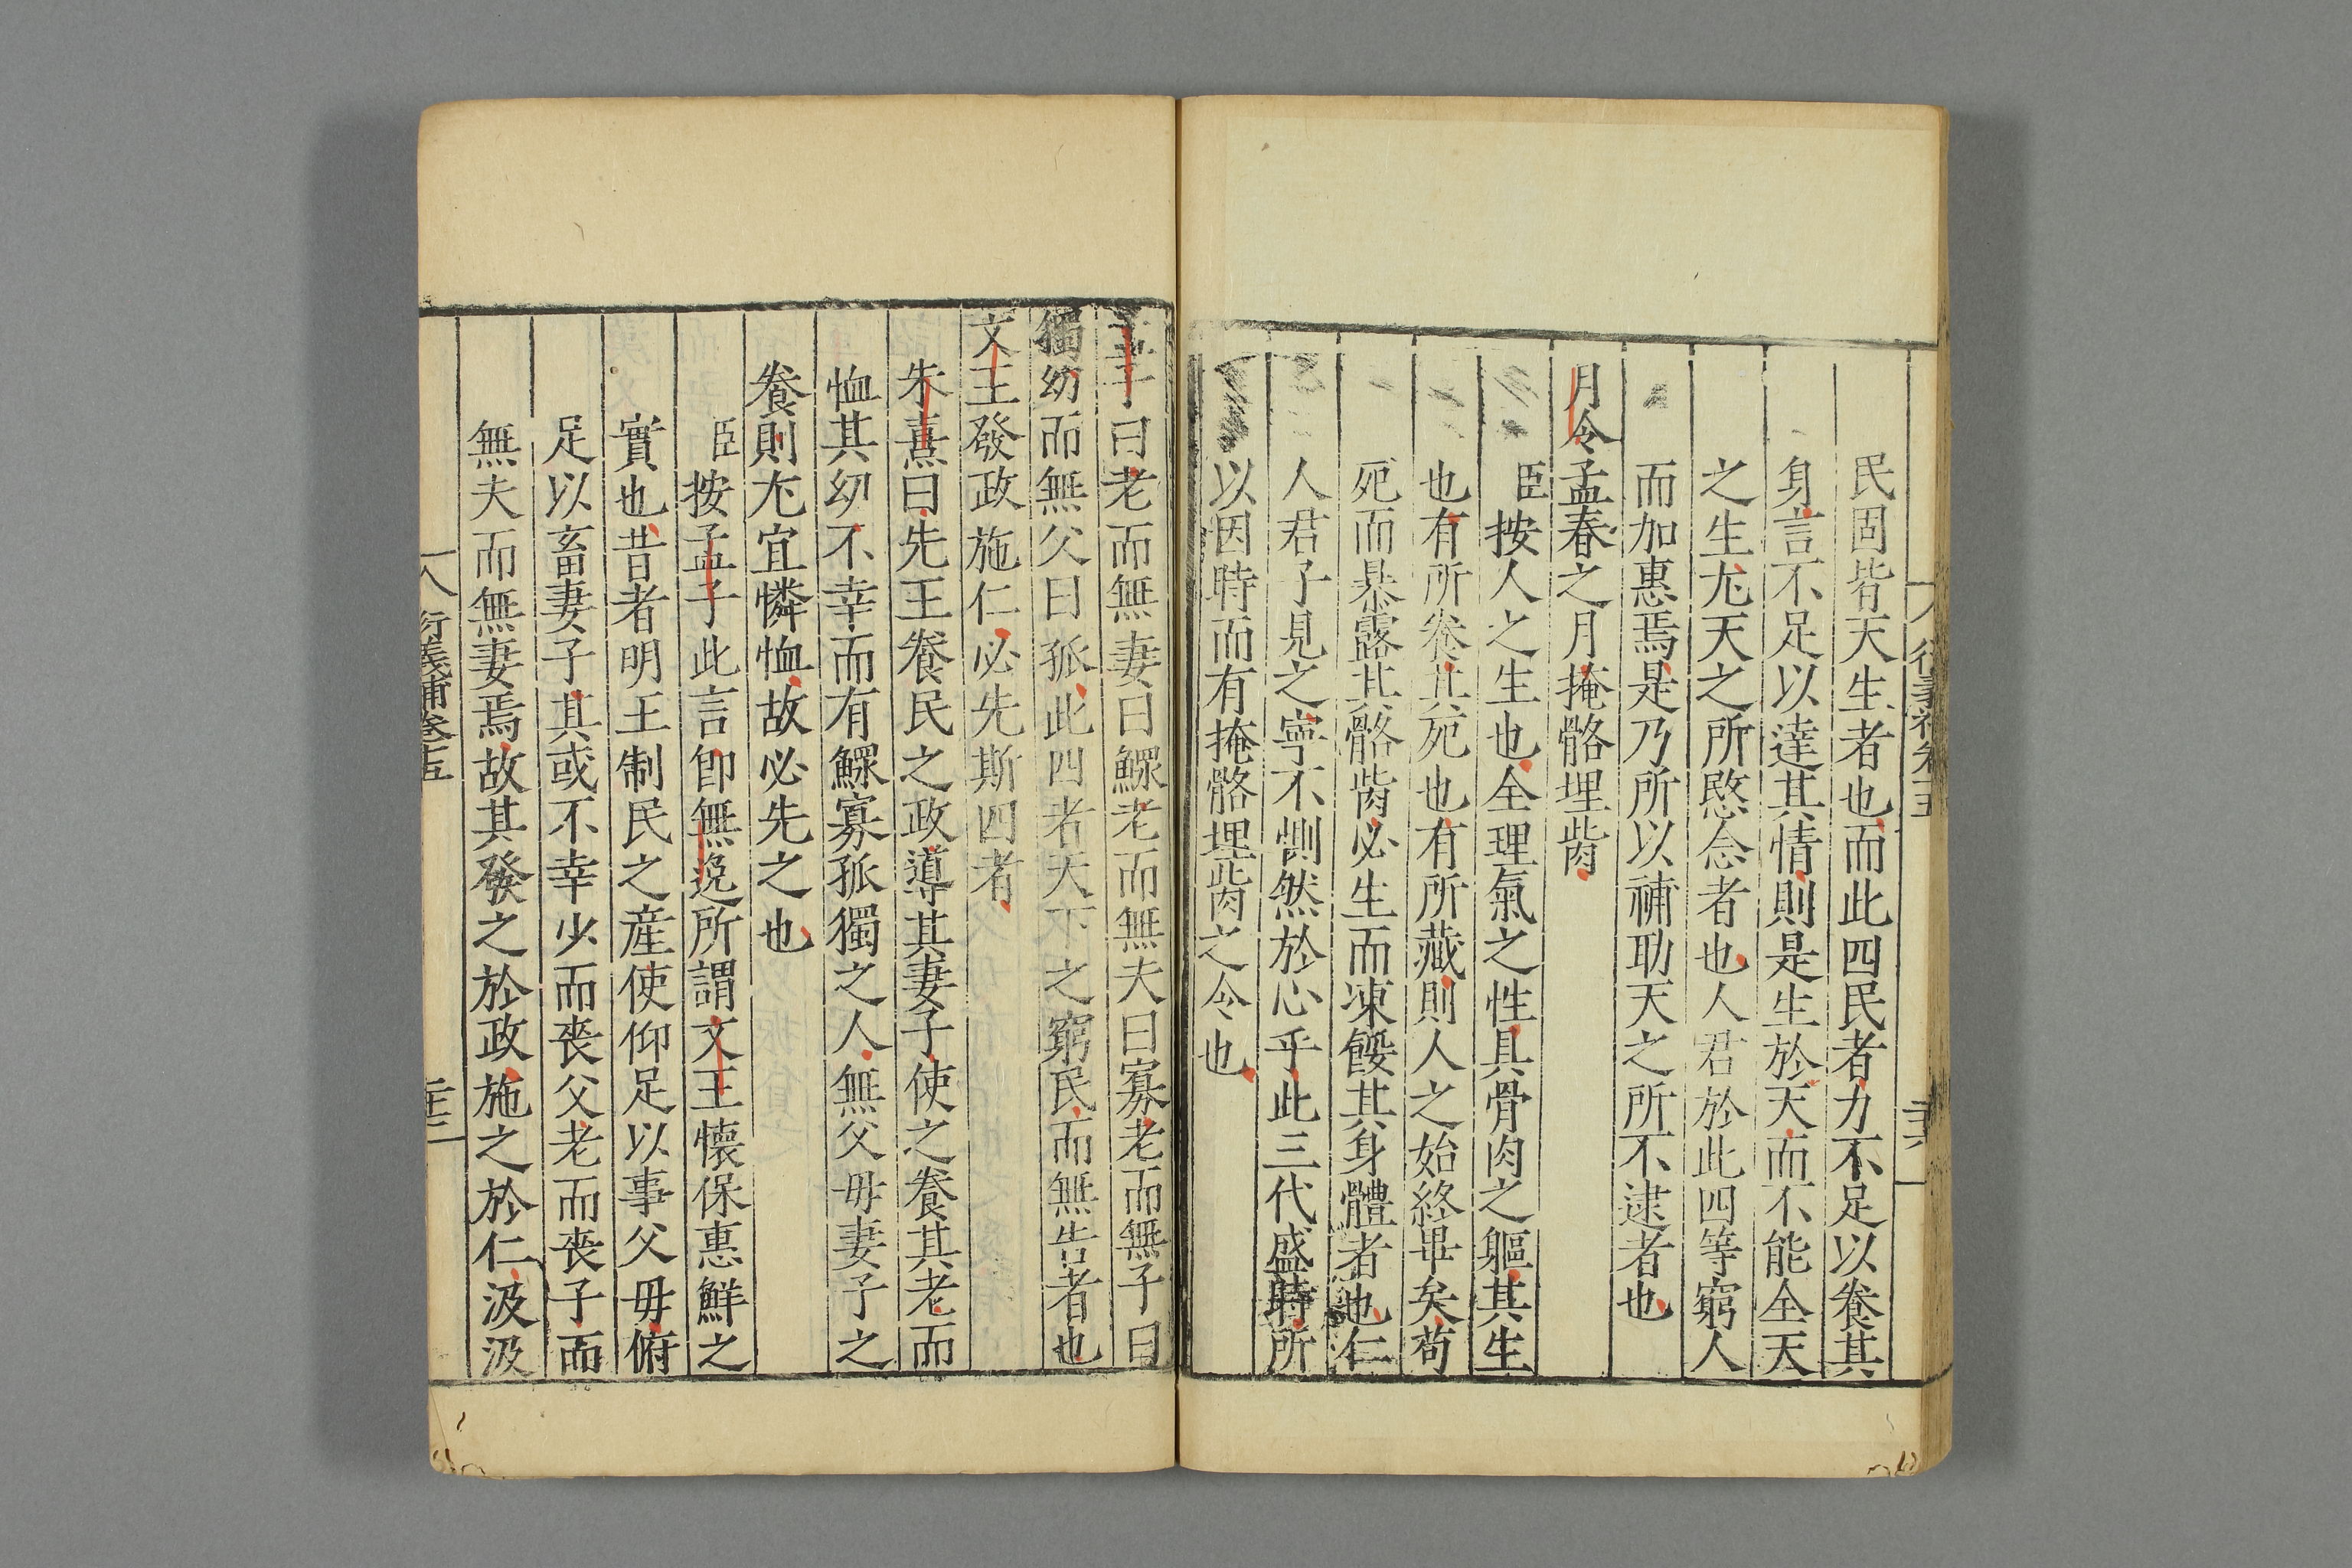 民固皆天生者也而此四民者力不足以養其
身言不足以達其情則是生於天而不能全天
之生尤天之所愍念者也人君於此四等窮人
而加惠焉是乃所以補助天之所不逮者也
月令孟春之月掩骼埋胔
臣按人之生也全理氣之性具骨肉之軀其生
也有所養其死也有所藏則人之始終畢矣苟
死而暴露其骼胔必生而凍餒其身體者也仁
人君子見之寧不惻然於心乎此三代盛時所
以因時而有掩骼埋胔之令也
孟子曰老而無妻曰鰥老而無夫曰寡老而無子曰
獨幼而無父曰孤此四者天下之窮民而無告者也
文王發政施仁必先斯四者
朱熹曰先王養民之政導其妻子使之養其老而
恤其幼不幸而有鰥寡孤獨之人無父母妻子之
養則尤宜憐恤故必先之也
臣按孟子此言即無逸所謂文王懷保惠鮮之
實也昔者明王制民之產使仰足以事父母俯
足以畜妻子其或不幸少而喪父老而喪子而
無夫而無妻焉故其發之於政施之於仁汲汲
衍義補卷十五